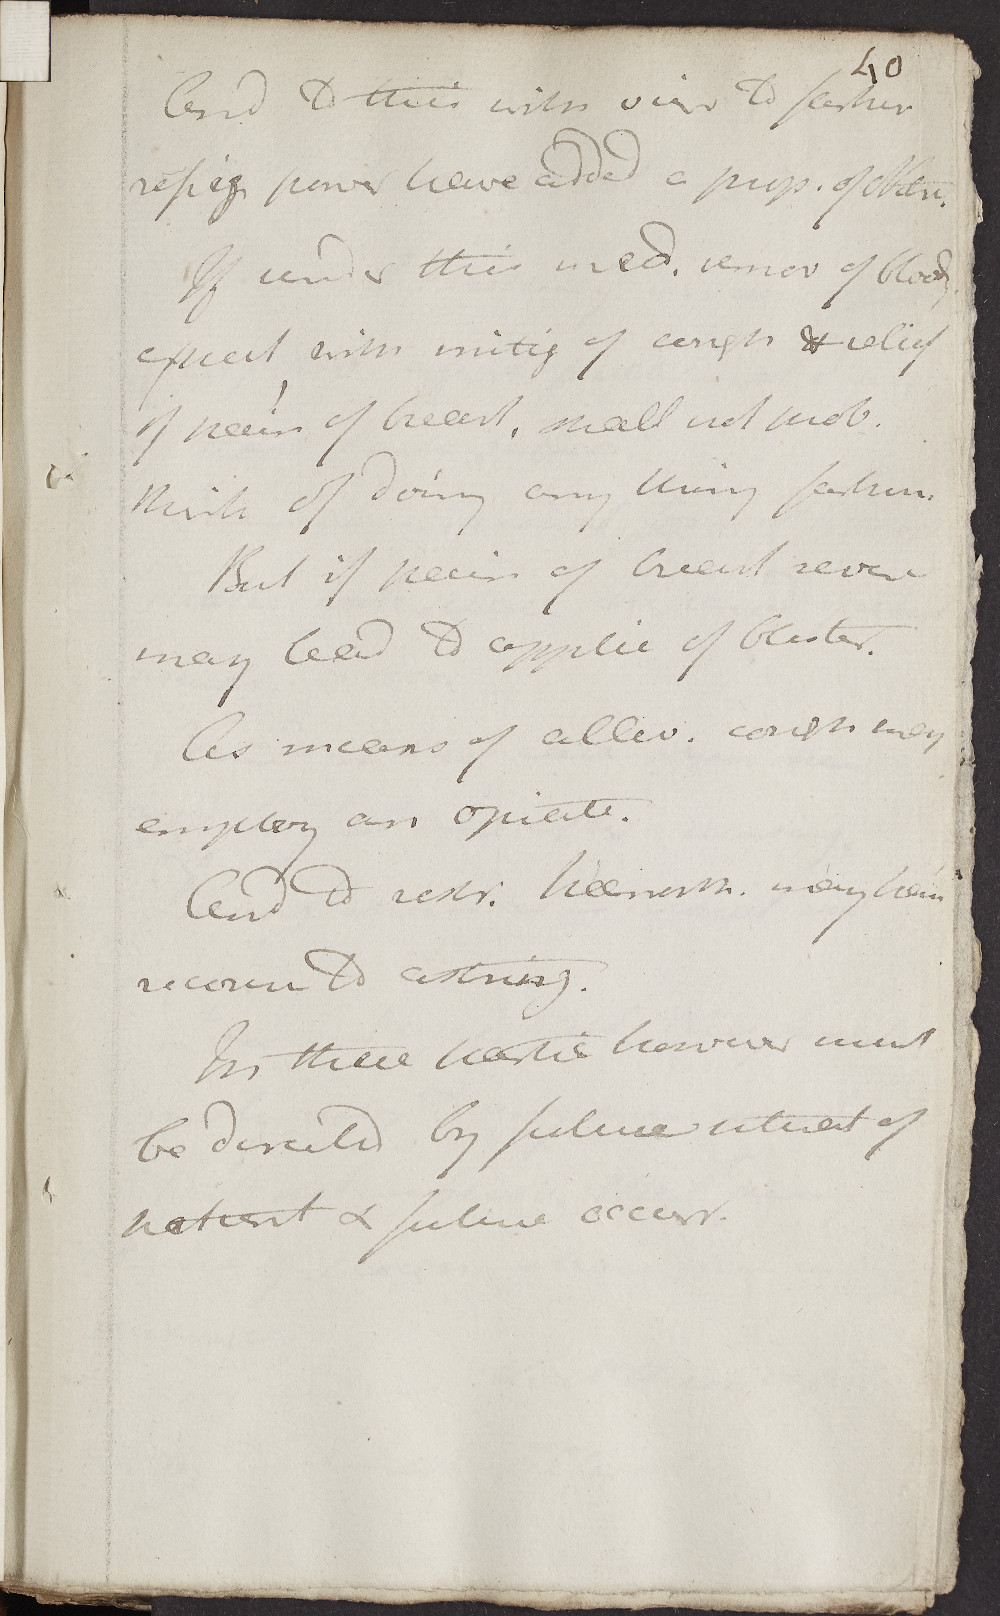 40
And to this with view to farther
refrig power have added a prop. of Nitr.
If under this med. remov of bloody
expect with mitig of cough & relief
of pain of breast, shall not prob.
think of doing any thing farther.
But if pain of breast severe
may lead to applic of blister.
As means of allev. cough may
employ an opiate.
And to restr. haemorrh. may have
recourse to astring.
In these partic however must
be directed by future
patient & future occurr.